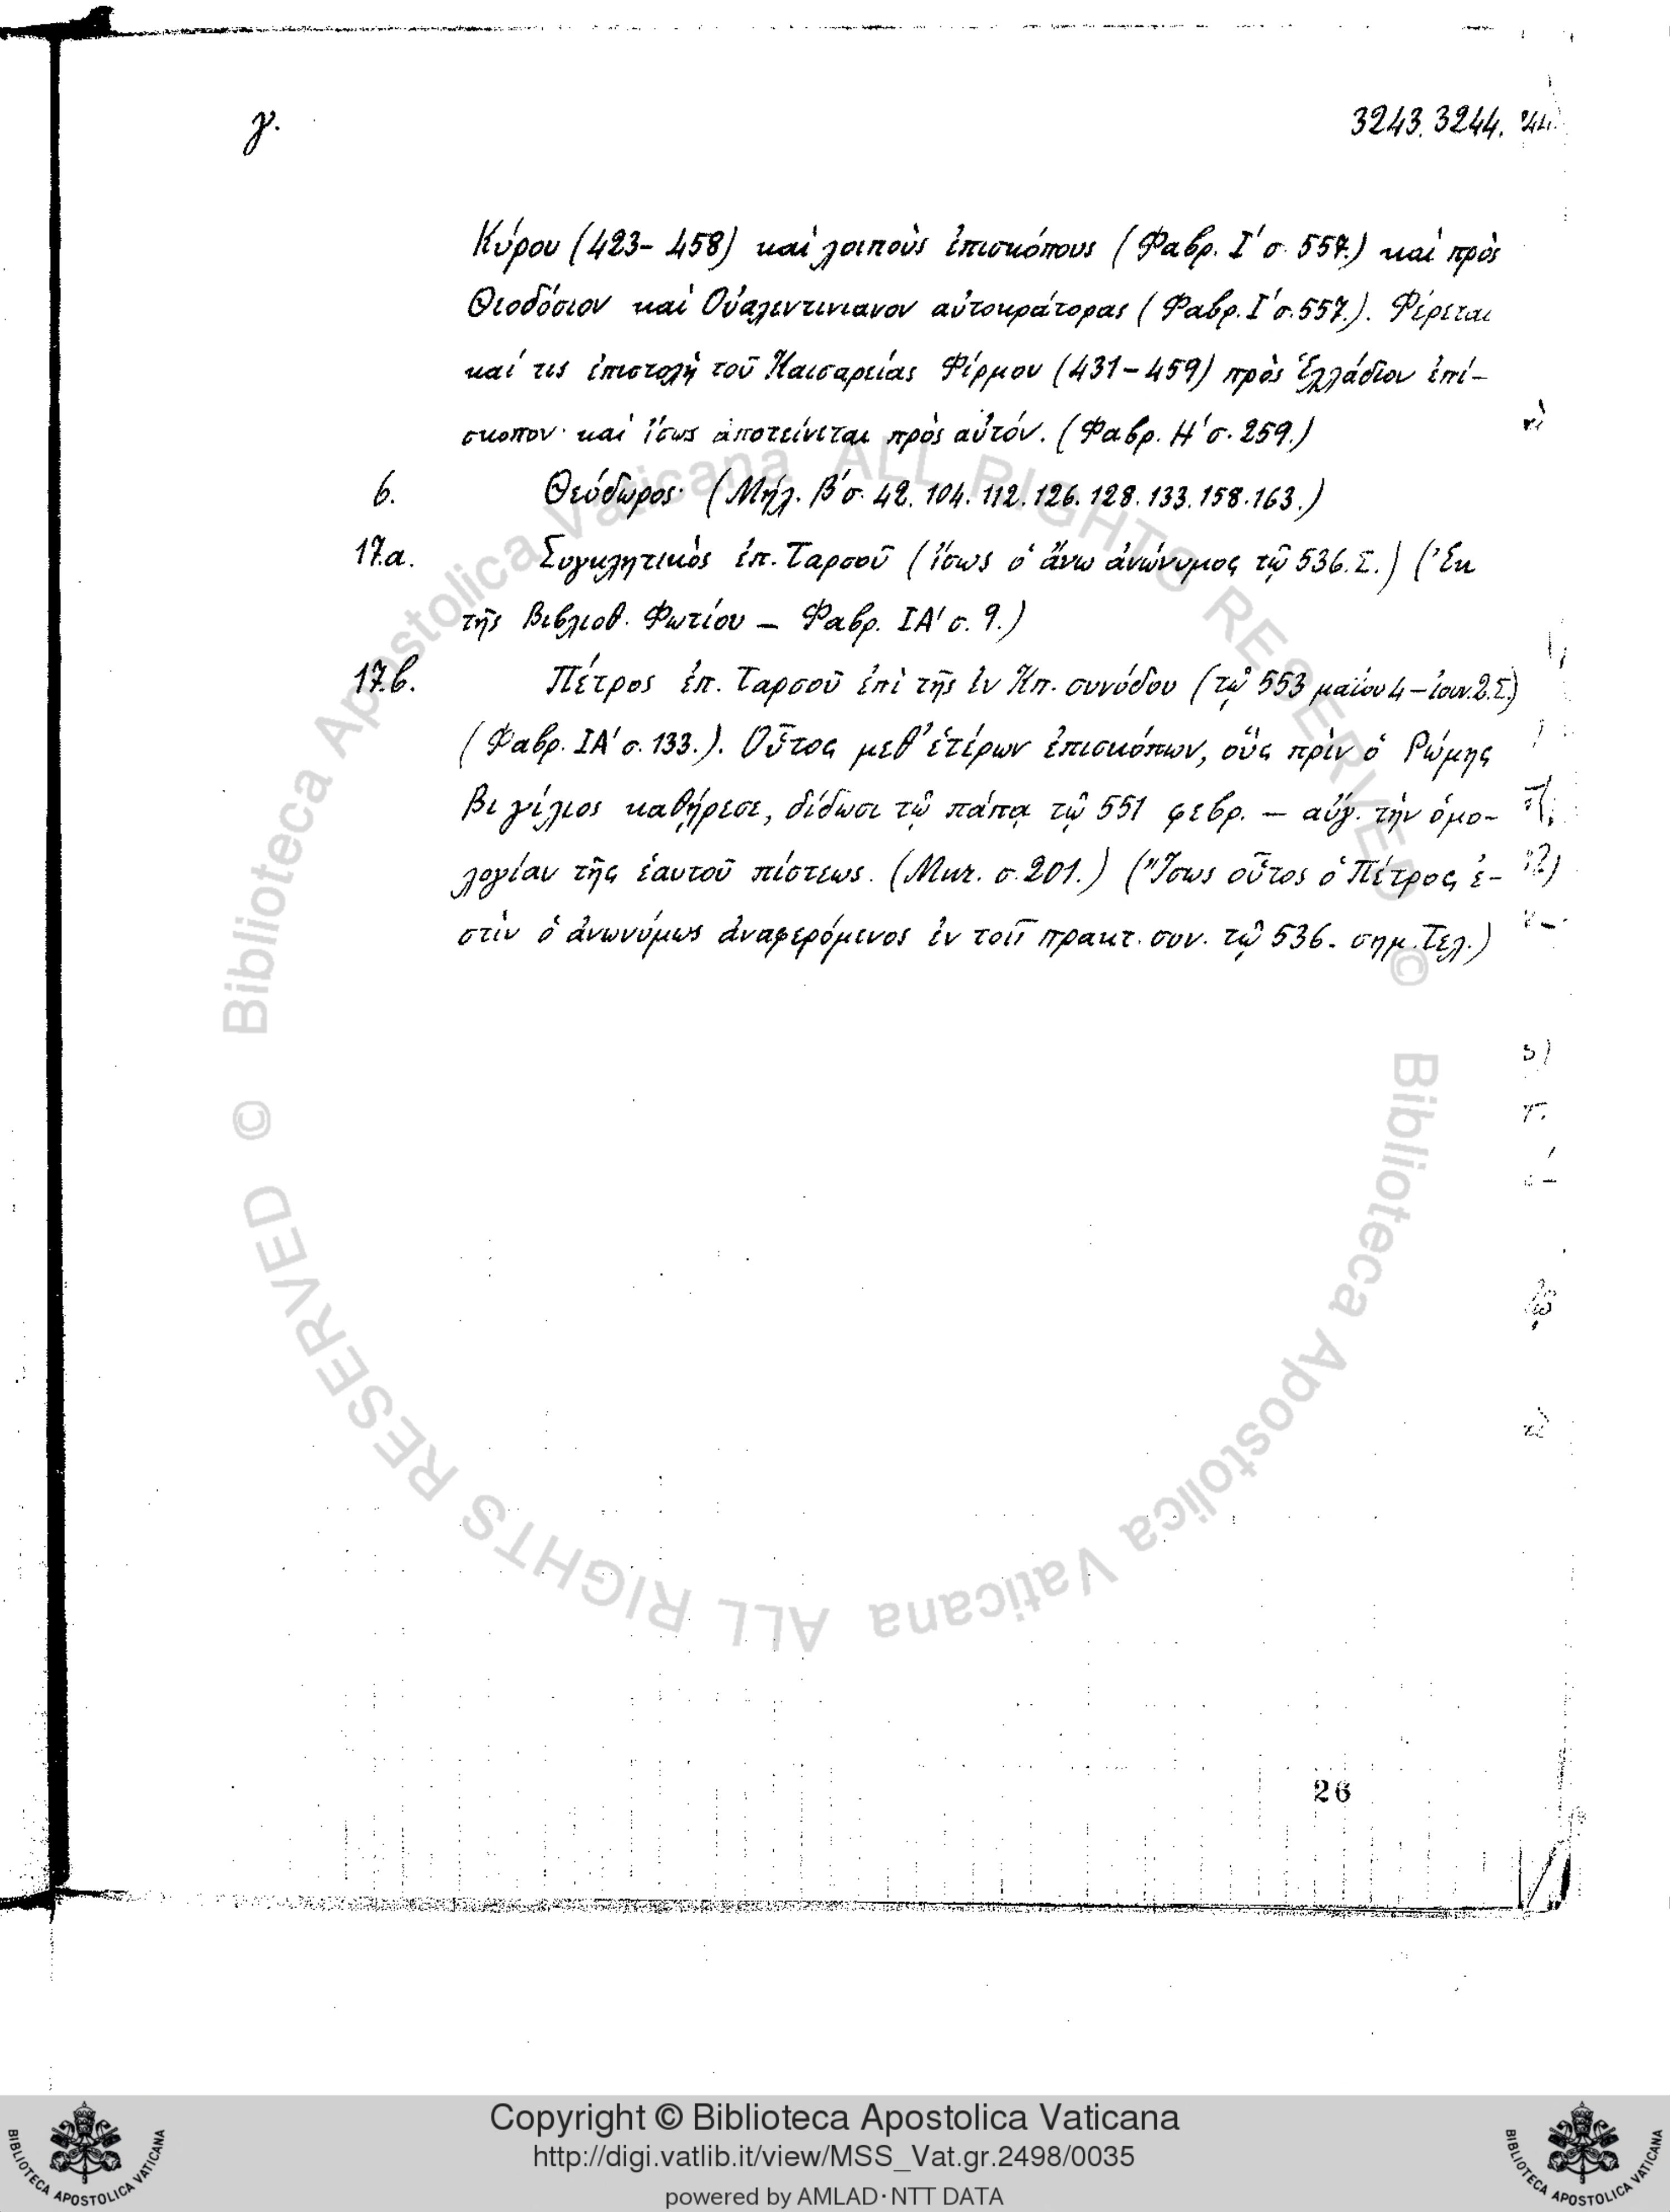 γ.
3243. 3244.
Κύρου (423-458) καὶ λοιποὺς ἐπισκόπους (Φαβρ. Ι' σ. 557.) καὶ πρὸς
Θεοδόσιον καὶ Οὐαλεντινιανον αὐτοκράτορας (Φαβρ. Ι' σ. 557.). Φέρεται
καί τις ἐπιστολὴ τοῦ Καισαρείας Φίρμου (431-459) πρὸς Ἑλλάδιον ἐπί-
σκοπον· καὶ ἴσως ἀποτείνεται πρὸς αὐτόν. (Φαβρ. Η' σ. 259.)
6. Θεόδωρος· (Μήλ. β' σ. 42. 104. 112. 126. 128. 133. 158. 163.)
17.α. Συγκλητικὸς ἐπ. Ταρσοῦ (ἴσως ὁ ἄνω ἀνώνυμος τῷ 536. Σ.) (Ἐκ
τῆς Βιβλιοθ. Φωτίου — Φαβρ. ΙΑ' σ. 9.)
17.β. Πέτρος ἐπ. Ταρσοῦ ἐπὶ τῆς ἐν Κπ. συνόδου (τῷ 553 μαΐου 4 - ἰουν. 2. Σ.)
(Φαβρ. ΙΑ' σ. 133.). Οὗτος μεθ' ἑτέρων ἐπισκόπων, οὓς πρὶν ὁ Ρώμης
Βιγίλιος καθήρεσε, δίδωσι τῷ πάπᾳ τῷ 551 φεβρ. — αὔγ. τὴν ὁμο-
λογίαν τῆς ἑαυτοῦ πίστεως. (Μικ. σ. 201.) (Ἴσως οὗτος ὁ Πέτρος ἐ-
στὶν ὁ ἀνωνύμως ἀναφερόμενος ἐν τοῖς πρακτ. συν. τῷ 536. σημ. Τελ.)
26
© Biblioteca Apostolica Vaticana ALL RIGHTS RESERVED
© Biblioteca Apostolica Vaticana ALL RIGHTS RESERVED
Copyright © Biblioteca Apostolica Vaticana
http://digi.vatlib.it/view/MSS_Vat.gr.2498/0035
powered by AMLAD·NTT DATA
BIBLIOTECA APOSTOLICA VATICANA
BIBLIOTECA APOSTOLICA VATICANA